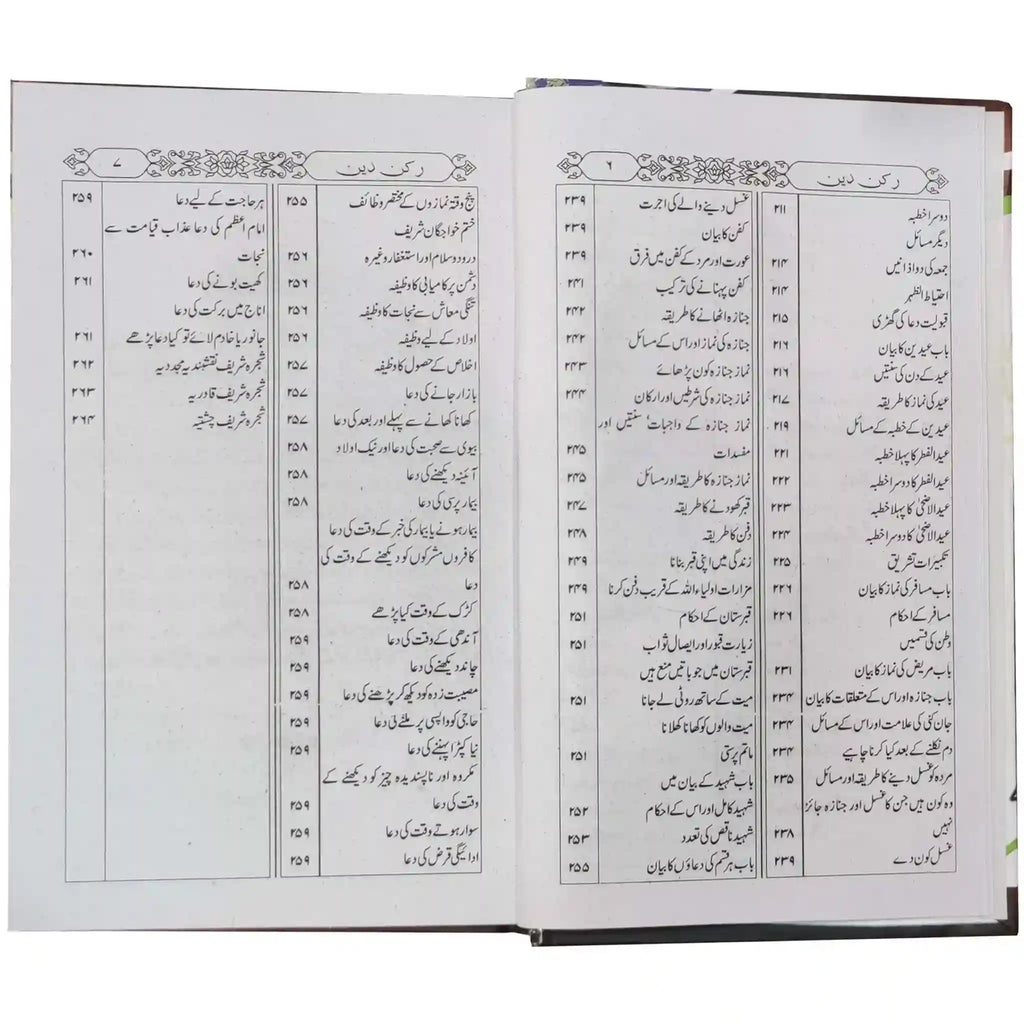 رکن دین
۶
دوسرا خطبہ ۲۱۱
دیگر مسائل
جمعہ کی دو اذانیں ۲۱۴
احتیاط الظہر ۲۱۴
قبولیت دعا کی گھڑی ۲۱۵
باب عیدین کا بیان ۲۱۶
عید کے دن کی سنتیں ۲۱۶
عید کی نماز کا طریقہ ۲۱۷
عیدین کے خطبہ کے مسائل ۲۱۹
عید الفطر کا پہلا خطبہ ۲۲۱
عید الفطر کا دوسرا خطبہ ۲۲۲
عید الاضحیٰ کا پہلا خطبہ ۲۲۳
عید الاضحیٰ کا دوسرا خطبہ ۲۲۴
تکبیرات تشریق ۲۲۵
باب مسافر کی نماز کا بیان ۲۲۶
مسافر کے احکام ۲۲۶
وطن کی قسمیں
باب مریض کی نماز کا بیان ۲۳۱
باب جنازہ اور اس کے متعلقات کا بیان ۲۳۴
جان کنی کی علامت اور اس کے مسائل ۲۳۴
دم نکلنے کے بعد کیا کرنا چاہیے ۲۳۴
مردہ کو غسل دینے کا طریقہ اور مسائل ۲۳۵
وہ کون ہیں جن کا غسل اور جنازہ جائز
نہیں ۲۳۸
غسل کون دے ۲۳۹
غسل دینے والے کی اجرت ۲۳۹
کفن کا بیان ۲۳۹
عورت اور مرد کے کفن میں فرق ۲۳۹
کفن پہنانے کی ترکیب ۲۴۱
جنازہ اٹھانے کا طریقہ ۲۴۲
جنازہ کی نماز اور اس کے مسائل ۲۴۲
نماز جنازہ کون پڑھائے ۲۴۳
نماز جنازہ کی شرطیں اور ارکان ۲۴۴
نماز جنازہ کے واجبات‘ سنتیں اور
مفسدات ۲۴۵
نماز جنازہ کا طریقہ اور مسائل ۲۴۵
قبر کھودنے کا طریقہ ۲۴۷
دفن کا طریقہ ۲۴۸
زندگی میں اپنی قبر بنانا ۲۴۹
مزارات اولیاء اللہ کے قریب دفن کرنا ۲۴۹
قبرستان کے احکام ۲۵۱
زیارت قبور اور ایصال ثواب ۲۵۱
قبرستان میں جو باتیں منع ہیں
میت کے ساتھ روٹی لے جانا ۲۵۱
میت والوں کو کھانا کھلانا
ماتم پرسی ۲۵۱
باب شہید کے بیان میں
شہید کامل اور اس کے احکام ۲۵۲
شہید ناقص کی تعدد ۲۵۳
باب ہر قسم کی دعاؤں کا بیان ۲۵۵
رکن دین
۷
پنج وقتہ نمازوں کے مختصر وظائف ۲۵۵
ختم خواجگان شریف
درود و سلام اور استغفار وغیرہ ۲۵۶
دشمن پر کامیابی کا وظیفہ ۲۵۶
تنگی معاش سے نجات کا وظیفہ ۲۵۶
اولاد کے لیے وظیفہ ۲۵۶
اخلاص کے حصول کا وظیفہ ۲۵۷
بازار جانے کی دعا ۲۵۷
کھانا کھانے سے پہلے اور بعد کی دعا ۲۵۷
بیوی سے صحبت کی دعا اور نیک اولاد ۲۵۸
آئینہ دیکھنے کی دعا ۲۵۸
بیمار پرسی کی دعا ۲۵۸
بیمار ہونے یا بیمار کی خبر کے وقت کی دعا
کافروں مشرکوں کو دیکھنے کے وقت کی
دعا ۲۵۸
کڑک کے وقت کیا پڑھے ۲۵۸
آندھی کے وقت کی دعا ۲۵۹
چاند دیکھنے کی دعا ۲۵۹
مصیبت زدہ کو دیکھ کر پڑھنے کی دعا ۲۵۹
حاجی کو واپسی پر ملنے کی دعا ۲۵۹
نیا کپڑا پہننے کی دعا ۲۵۹
مکروہ اور ناپسندیدہ چیز کو دیکھنے کے
وقت کی دعا ۲۵۹
سوار ہوتے وقت کی دعا ۲۵۹
ادائیگی قرض کی دعا ۲۵۹
ہر حاجت کے لیے دعا ۲۵۹
امام اعظم کی دعا عذاب قیامت سے
نجات ۲۶۰
کھیت بونے کی دعا ۲۶۱
اناج میں برکت کی دعا
جانور یا خادم لائے تو کیا دعا پڑھے ۲۶۱
شجرہ شریف نقشبندیہ مجددیہ ۲۶۲
شجرہ شریف قادریہ ۲۶۳
شجرہ شریف چشتیہ ۲۶۴